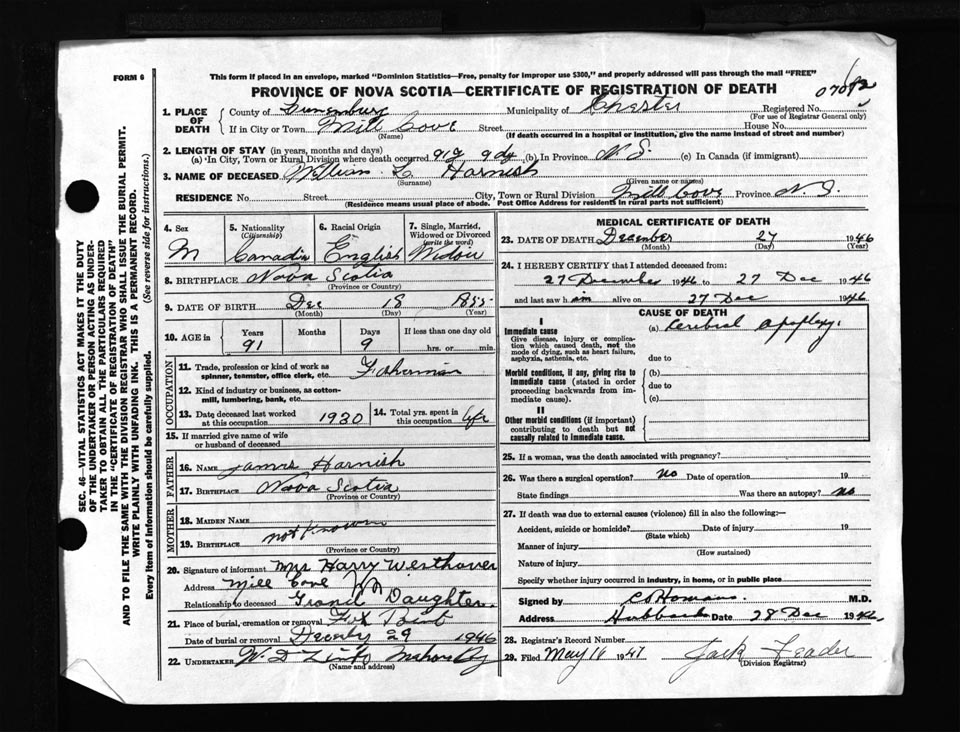 FORM 6
This form if placed in an envelope, marked "Dominion Statistics—Free, penalty for improper use $300," and properly addressed will pass through the mail "FREE"
PROVINCE OF NOVA SCOTIA—CERTIFICATE OF REGISTRATION OF DEATH
1. PLACE OF DEATH
County of Lunenburg Municipality of Chester Registered No.
(For use of Registrar General only)
If in City or Town Mill Cove Street House No.
(Name) (If death occurred in a hospital or institution, give the name instead of street and number)
2. LENGTH OF STAY (in years, months and days)
(a) In City, Town or Rural Division where death occurred 91 y 9 dy (b) In Province N. S. (c) In Canada (if immigrant)
3. NAME OF DECEASED William Harnish
(Surname) (Given name or names)
RESIDENCE No. Street City, Town or Rural Division Mill Cove Province N. S.
(Residence means usual place of abode. Post Office Address for residents in rural parts not sufficient)
4. Sex M
5. Nationality (Citizenship) Canadin
6. Racial Origin English
7. Single, Married, Widowed or Divorced (write the word) Widow
8. BIRTHPLACE Nova Scotia
(Province or Country)
9. DATE OF BIRTH Dec 18 1855
(Month) (Day) (Year)
10. AGE in Years Months Days If less than one day old
91 9 hrs. or min.
OCCUPATION
11. Trade, profession or kind of work as spinner, teamster, office clerk, etc. Fisherman
12. Kind of industry or business, as cotton-mill, lumbering, bank, etc.
13. Date deceased last worked at this occupation 1930
14. Total yrs. spent in this occupation life
15. If married give name of wife or husband of deceased
FATHER
16. NAME James Harnish
17. BIRTHPLACE Nova Scotia
(Province or Country)
MOTHER
18. MAIDEN NAME
19. BIRTHPLACE not known
(Province or Country)
20. Signature of informant Mrs Harry Westhaver
Address Mill Cove
Relationship to deceased Grand Daughter
21. Place of burial, cremation or removal Fox Point
Date of burial or removal 29 1946
22. UNDERTAKER W. D.
(Name and address)
MEDICAL CERTIFICATE OF DEATH
23. DATE OF DEATH December 27 1946
(Month) (Day) (Year)
24. I HEREBY CERTIFY that I attended deceased from:
27 December 1946 to 27 Dec 1946
and last saw him alive on 27 Dec 1946
CAUSE OF DEATH
I
Immediate cause (a) Cerebral apoplexy.
Give disease, injury or complication which caused death, not the mode of dying, such as heart failure, asphyxia, asthenia, etc.
due to
Morbid conditions, if any, giving rise to immediate cause (stated in order proceeding backwards from immediate cause).
(b)
due to
(c)
II
Other morbid conditions (if important) contributing to death but not causally related to immediate cause.
25. If a woman, was the death associated with pregnancy?
26. Was there a surgical operation? no Date of operation 19
State findings Was there an autopsy? no
27. If death was due to external causes (violence) fill in also the following:—
Accident, suicide or homicide? Date of injury 19
(State which)
Manner of injury
(How sustained)
Nature of injury
Specify whether injury occurred in industry, in home, or in public place
Signed by M.D.
Address Hubbards Date 28 Dec 1946
28. Registrar's Record Number
29. Filed May 16 1947 Jack Feader
(Division Registrar)
SEC. 46—VITAL STATISTICS ACT MAKES IT THE DUTY
OF THE UNDERTAKER OR PERSON ACTING AS UNDER-
TAKER TO OBTAIN ALL THE PARTICULARS REQUIRED
IN THE "CERTIFICATE OF REGISTRATION OF DEATH"
AND TO FILE THE SAME WITH THE DIVISION REGISTRAR WHO SHALL ISSUE THE BURIAL PERMIT.
WRITE PLAINLY WITH UNFADING INK. THIS IS A PERMANENT RECORD.
Every item of information should be carefully supplied. (See reverse side for instructions.)